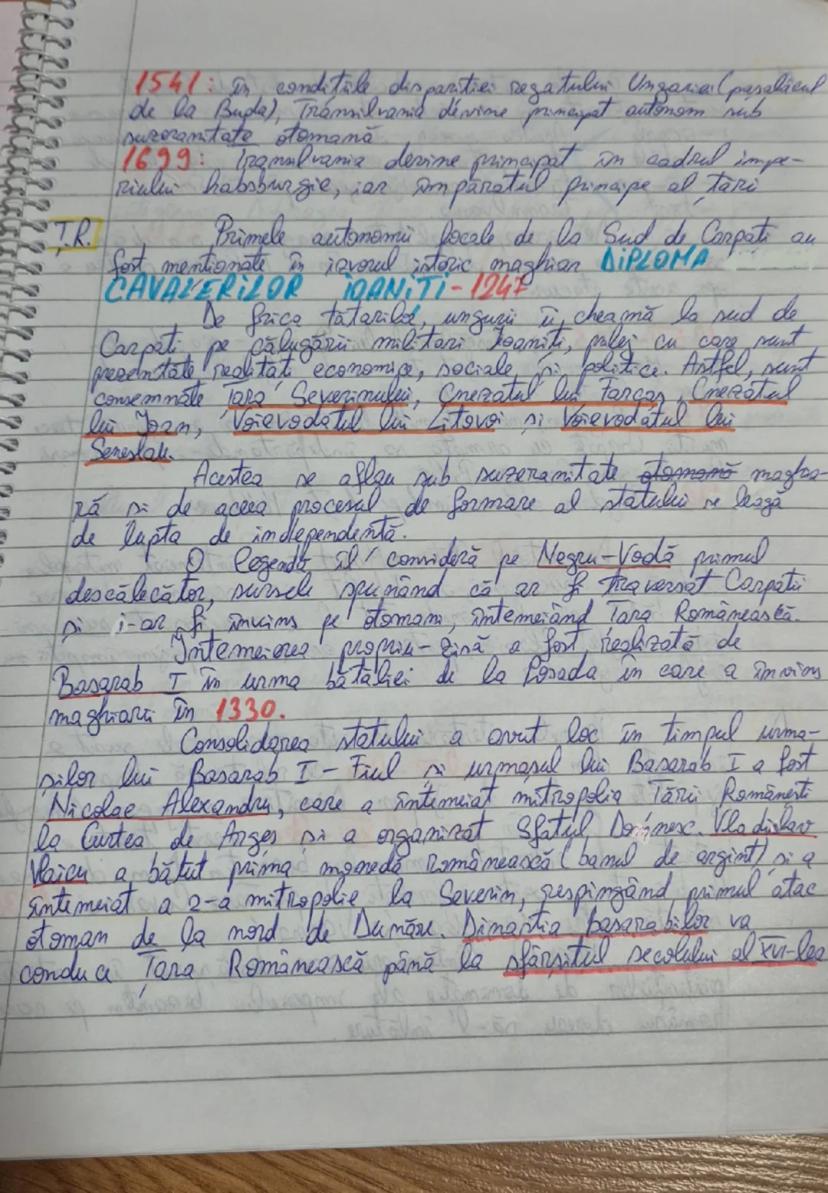 1541: în condițiile dispariției regatului Ungariei (pașalâcul
de la Buda), Transilvania devine principat autonom sub
suzeranitate otomană
1699: Transilvania devine principat în cadrul impe-
riului habsburgic, iar împăratul principe al țării
Ț.R. Primele autonomii locale de la Sud de Carpați au
fost menționate în izvorul istoric maghiar DIPLOMA
CAVALERILOR IOANIȚI - 1247
De frica tătarilor, ungurii îi cheamă la sud de
Carpați pe călugării militari Ioaniți, prilej cu care sunt
prezentate realități economice, sociale și politice. Astfel, sunt
consemnate Țara Severinului, Cnezatul lui Farcaș, Cnezatul
lui Ioan, Voievodatul lui Litovoi și Voievodatul lui
Seneslau.
Acestea se aflau sub suzeranitate otomană maghia-
ră și de aceea procesul de formare al statului se leagă
de lupta de independență.
O legendă îl consideră pe Negru-Vodă primul
descălecător, sursele spunând că ar fi traversat Carpații
și i-ar fi învins pe otomani, întemeiând Țara Românească.
Întemeierea propriu-zisă a fost realizată de
Basarab I în urma bătăliei de la Posada în care a învins
maghiarii în 1330.
Consolidarea statului a avut loc în timpul urma-
șilor lui Basarab I - Fiul și urmașul lui Basarab I a fost
Nicolae Alexandru, care a întemeiat mitropolia Țării Românești
la Curtea de Argeș și a organizat Sfatul Domnesc. Vladislav
Vlaicu a bătut prima monedă românească (banul de argint) și a
întemeiat a 2-a mitropolie la Severin, respingând primul atac
otoman de la nord de Dunăre. Dinastia basarabilor va
conduce Țara Românească până la sfârșitul secolului al XVI-lea